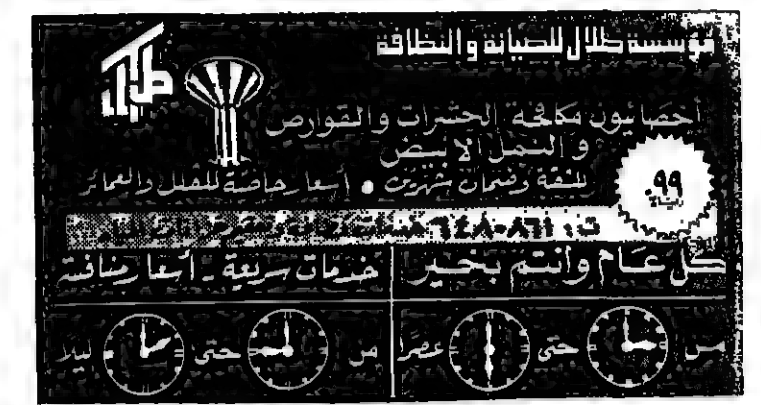 مؤسسة طلال للصيانة والنظافة
طلال
أخصائيون مكافحة الحشرات والقوارض
والنمل الأبيض
٩٩ ريال
للشقة وضمان شهرين • أسعار خاصة للفلل والعمائر
ت: ٨٦١-٦٤٨٠
كل عام وانتم بخير
خدمات سريعة - أسعار منافسة
من حتى عصرًا
من حتى ليلا